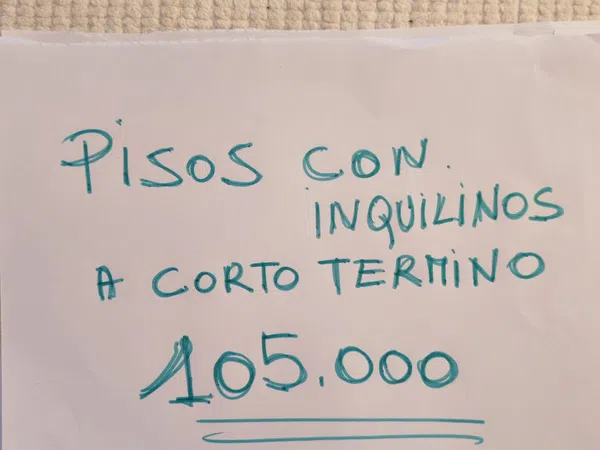 PISOS CON
INQUILINOS
A CORTO TERMINO
105.000